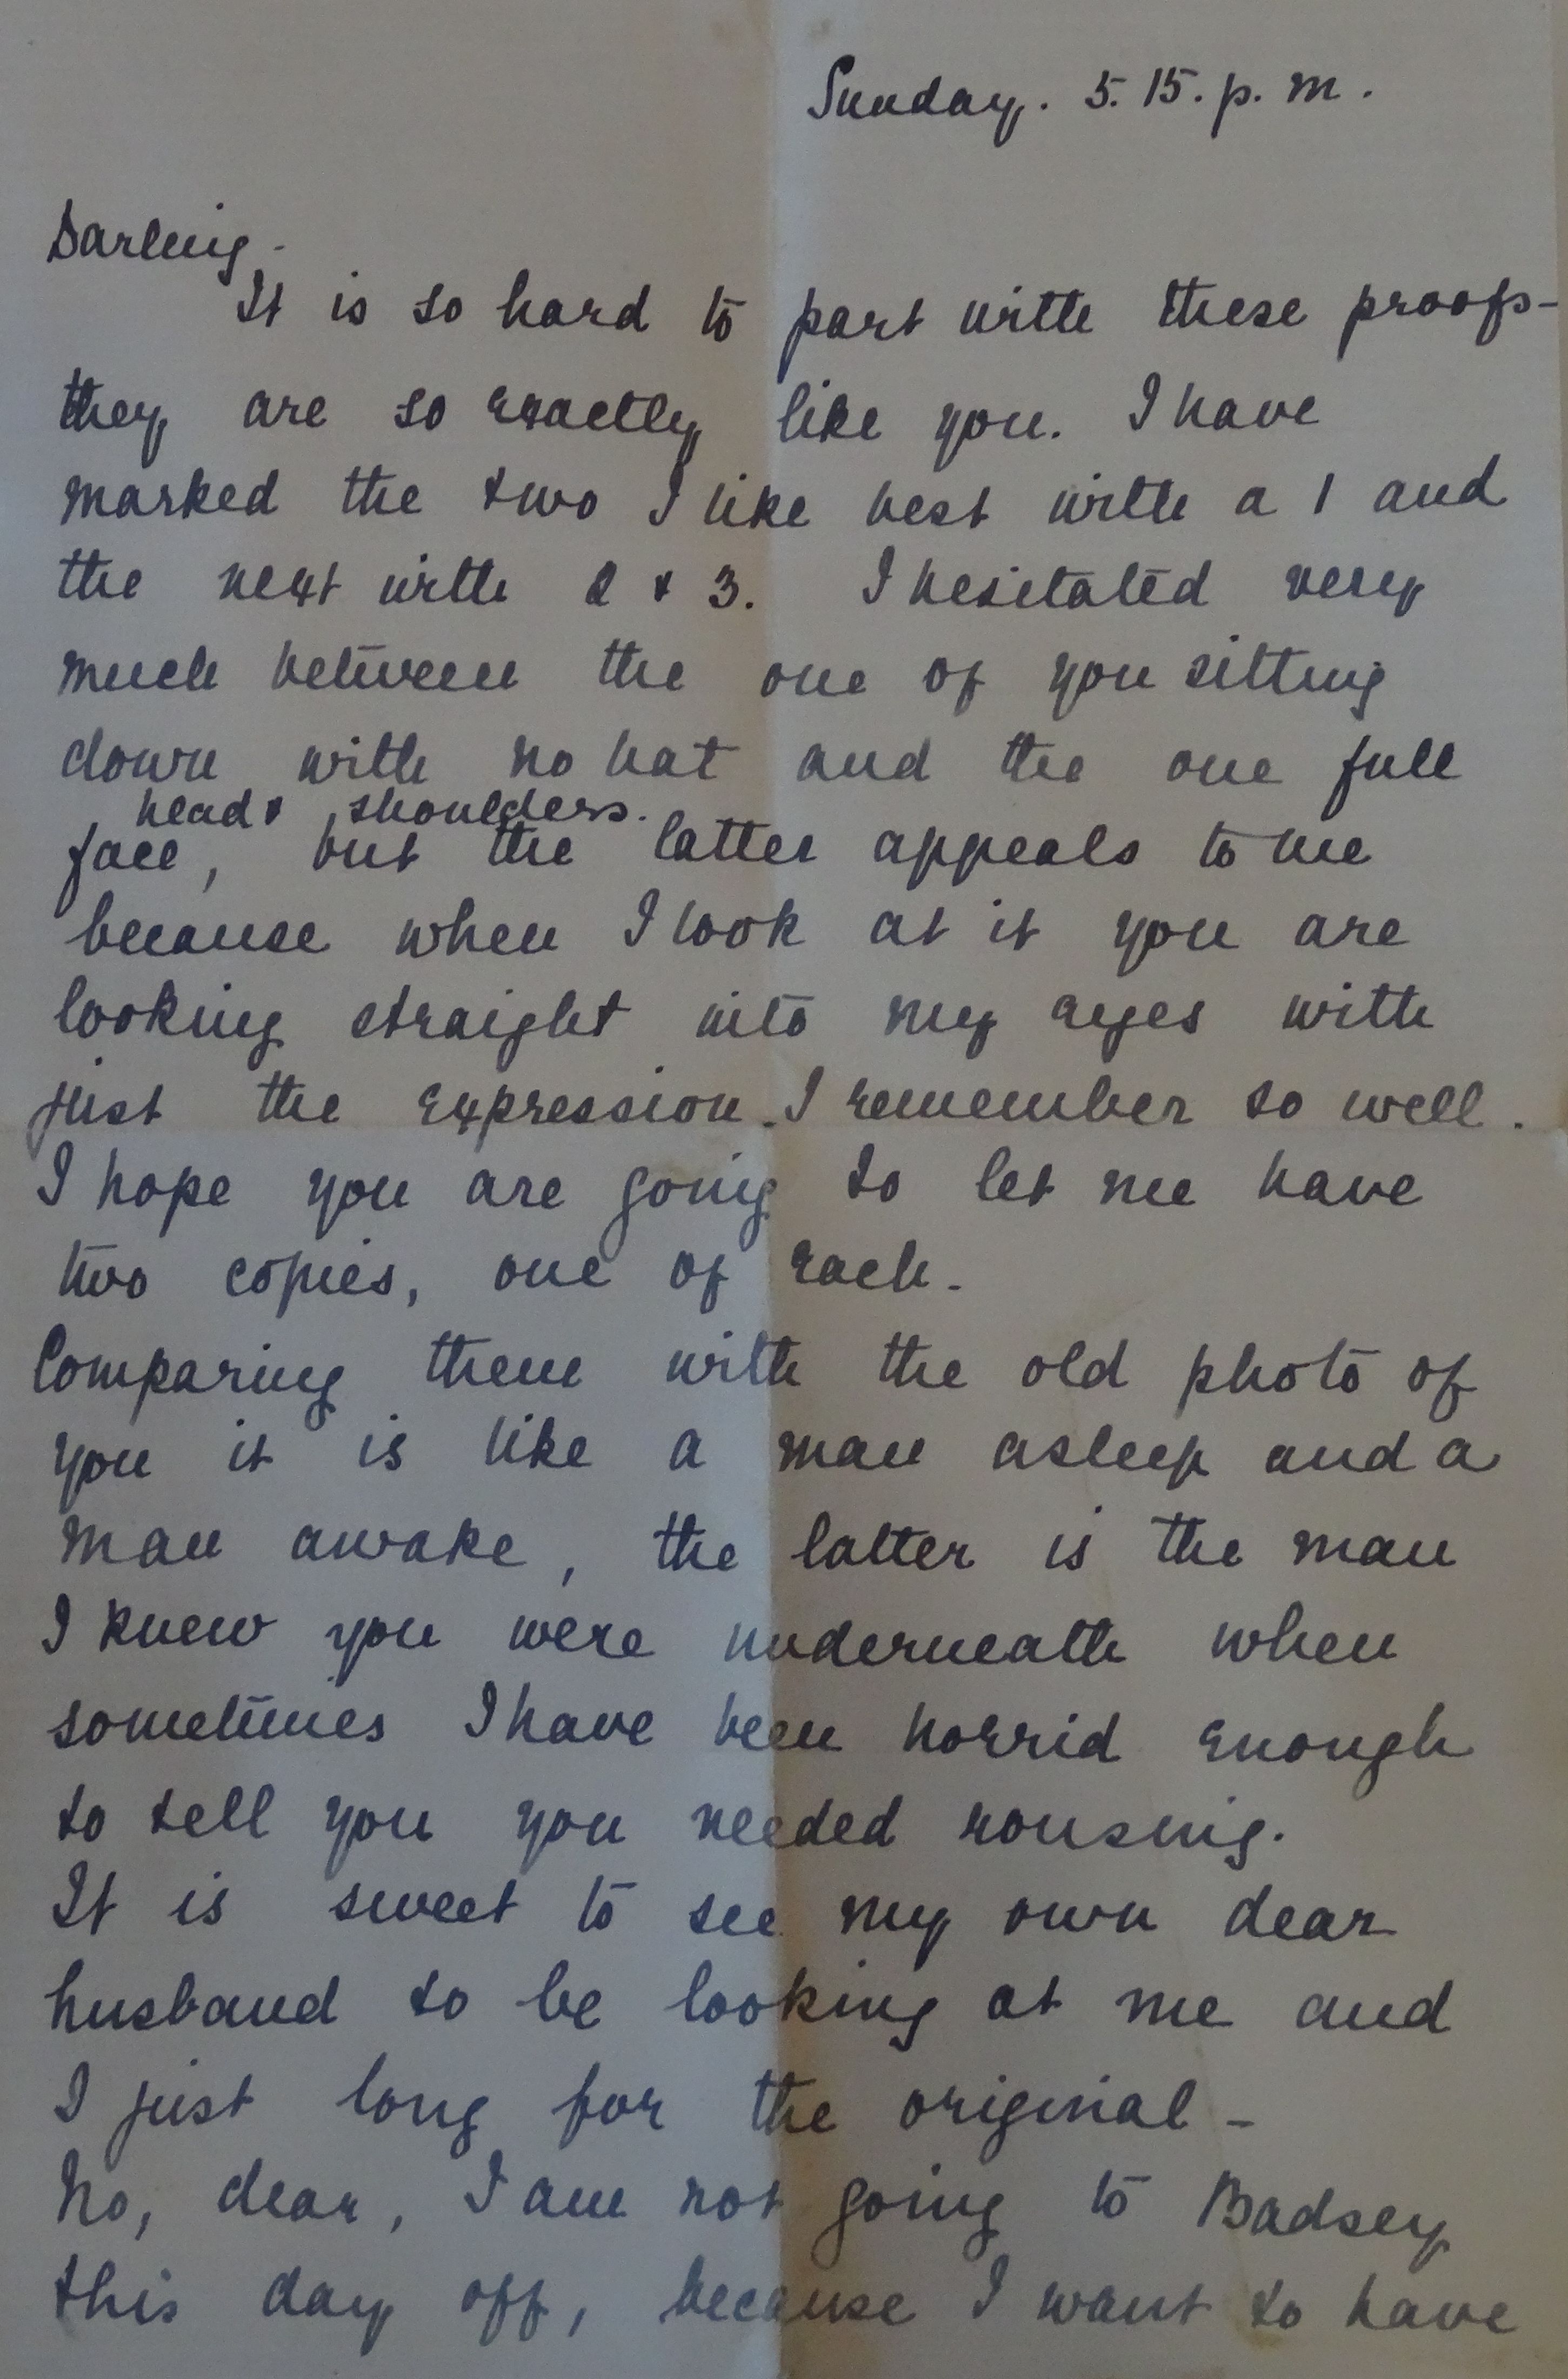 Sunday. 5.15.p.m.
Darling -
It is so hard to part with these proofs -
they are so exactly like you. I have
marked the two I like best with a 1 and
the next with 2 & 3. I hesitated very
much between the one of you sitting
down with no hat and the one full
head & shoulders.
face, but the latter appeals to me
because when I look at it you are
looking straight into my eyes with
just the expression I remember so well.
I hope you are going to let me have
two copies, one of each.
Comparing them with the old photo of
you it is like a man asleep and a
man awake, the latter is the man
I knew you were underneath when
sometimes I have been horrid enough
to tell you you needed rousing.
It is sweet to see my own dear
husband to be looking at me and
I just long for the original -
No, dear, I am not going to Badsey
this day off, because I want to have